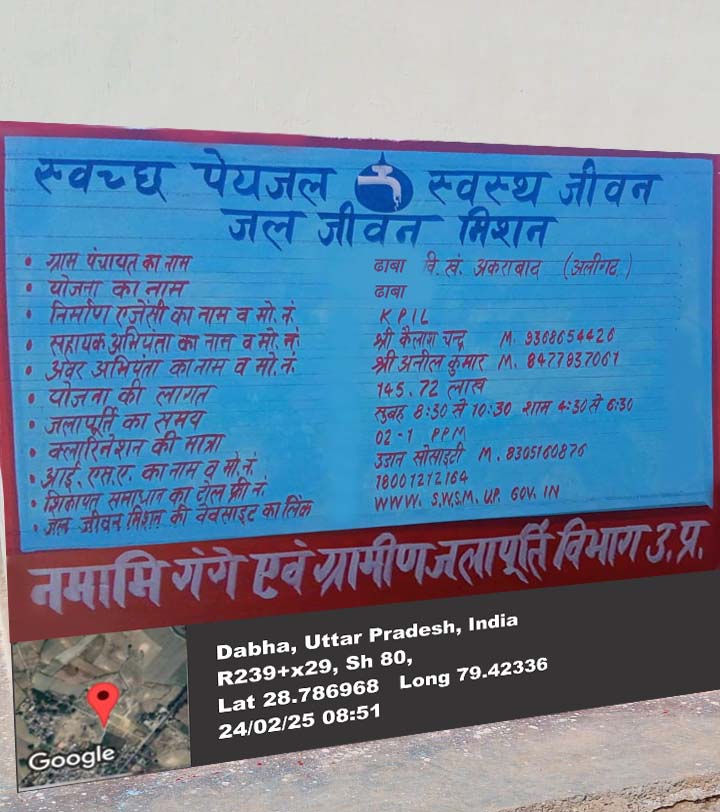 स्वच्छ पेयजल स्वस्थ जीवन
जल जीवन मिशन
• ग्राम पंचायत का नाम ढाबा वि. खं. अकराबाद (अलीगढ़)
• योजना का नाम ढाबा
• निर्माण एजेंसी का नाम व मो. नं. KPIL
• सहायक अभियंता का नाम व मो. नं. श्री कैलाश चन्द्र M. 9368654426
• अवर अभियंता का नाम व मो. नं. श्री अनील कुमार M. 8477837061
• योजना की लागत 145.72 लाख
• जलापूर्ति का समय सुबह 8:30 से 10:30 शाम 4:30 से 6:30
• क्लोरिनेशन की मात्रा 02-1 PPM
• आई. एस. ए. का नाम व मो. नं. उडान सोसाइटी M. 8305160876
• शिकायत समाधान का टोल फ्री नं. 18001212164
• जल जीवन मिशन की वेबसाइट का लिंक WWW. S.W.S.M. U.P. GOV. IN
नमामि गंगे एवं ग्रामीण जलापूर्ति विभाग उ. प्र.
Dabha, Uttar Pradesh, India
R239+x29, Sh 80,
Lat 28.786968 Long 79.42336
24/02/25 08:51
Google